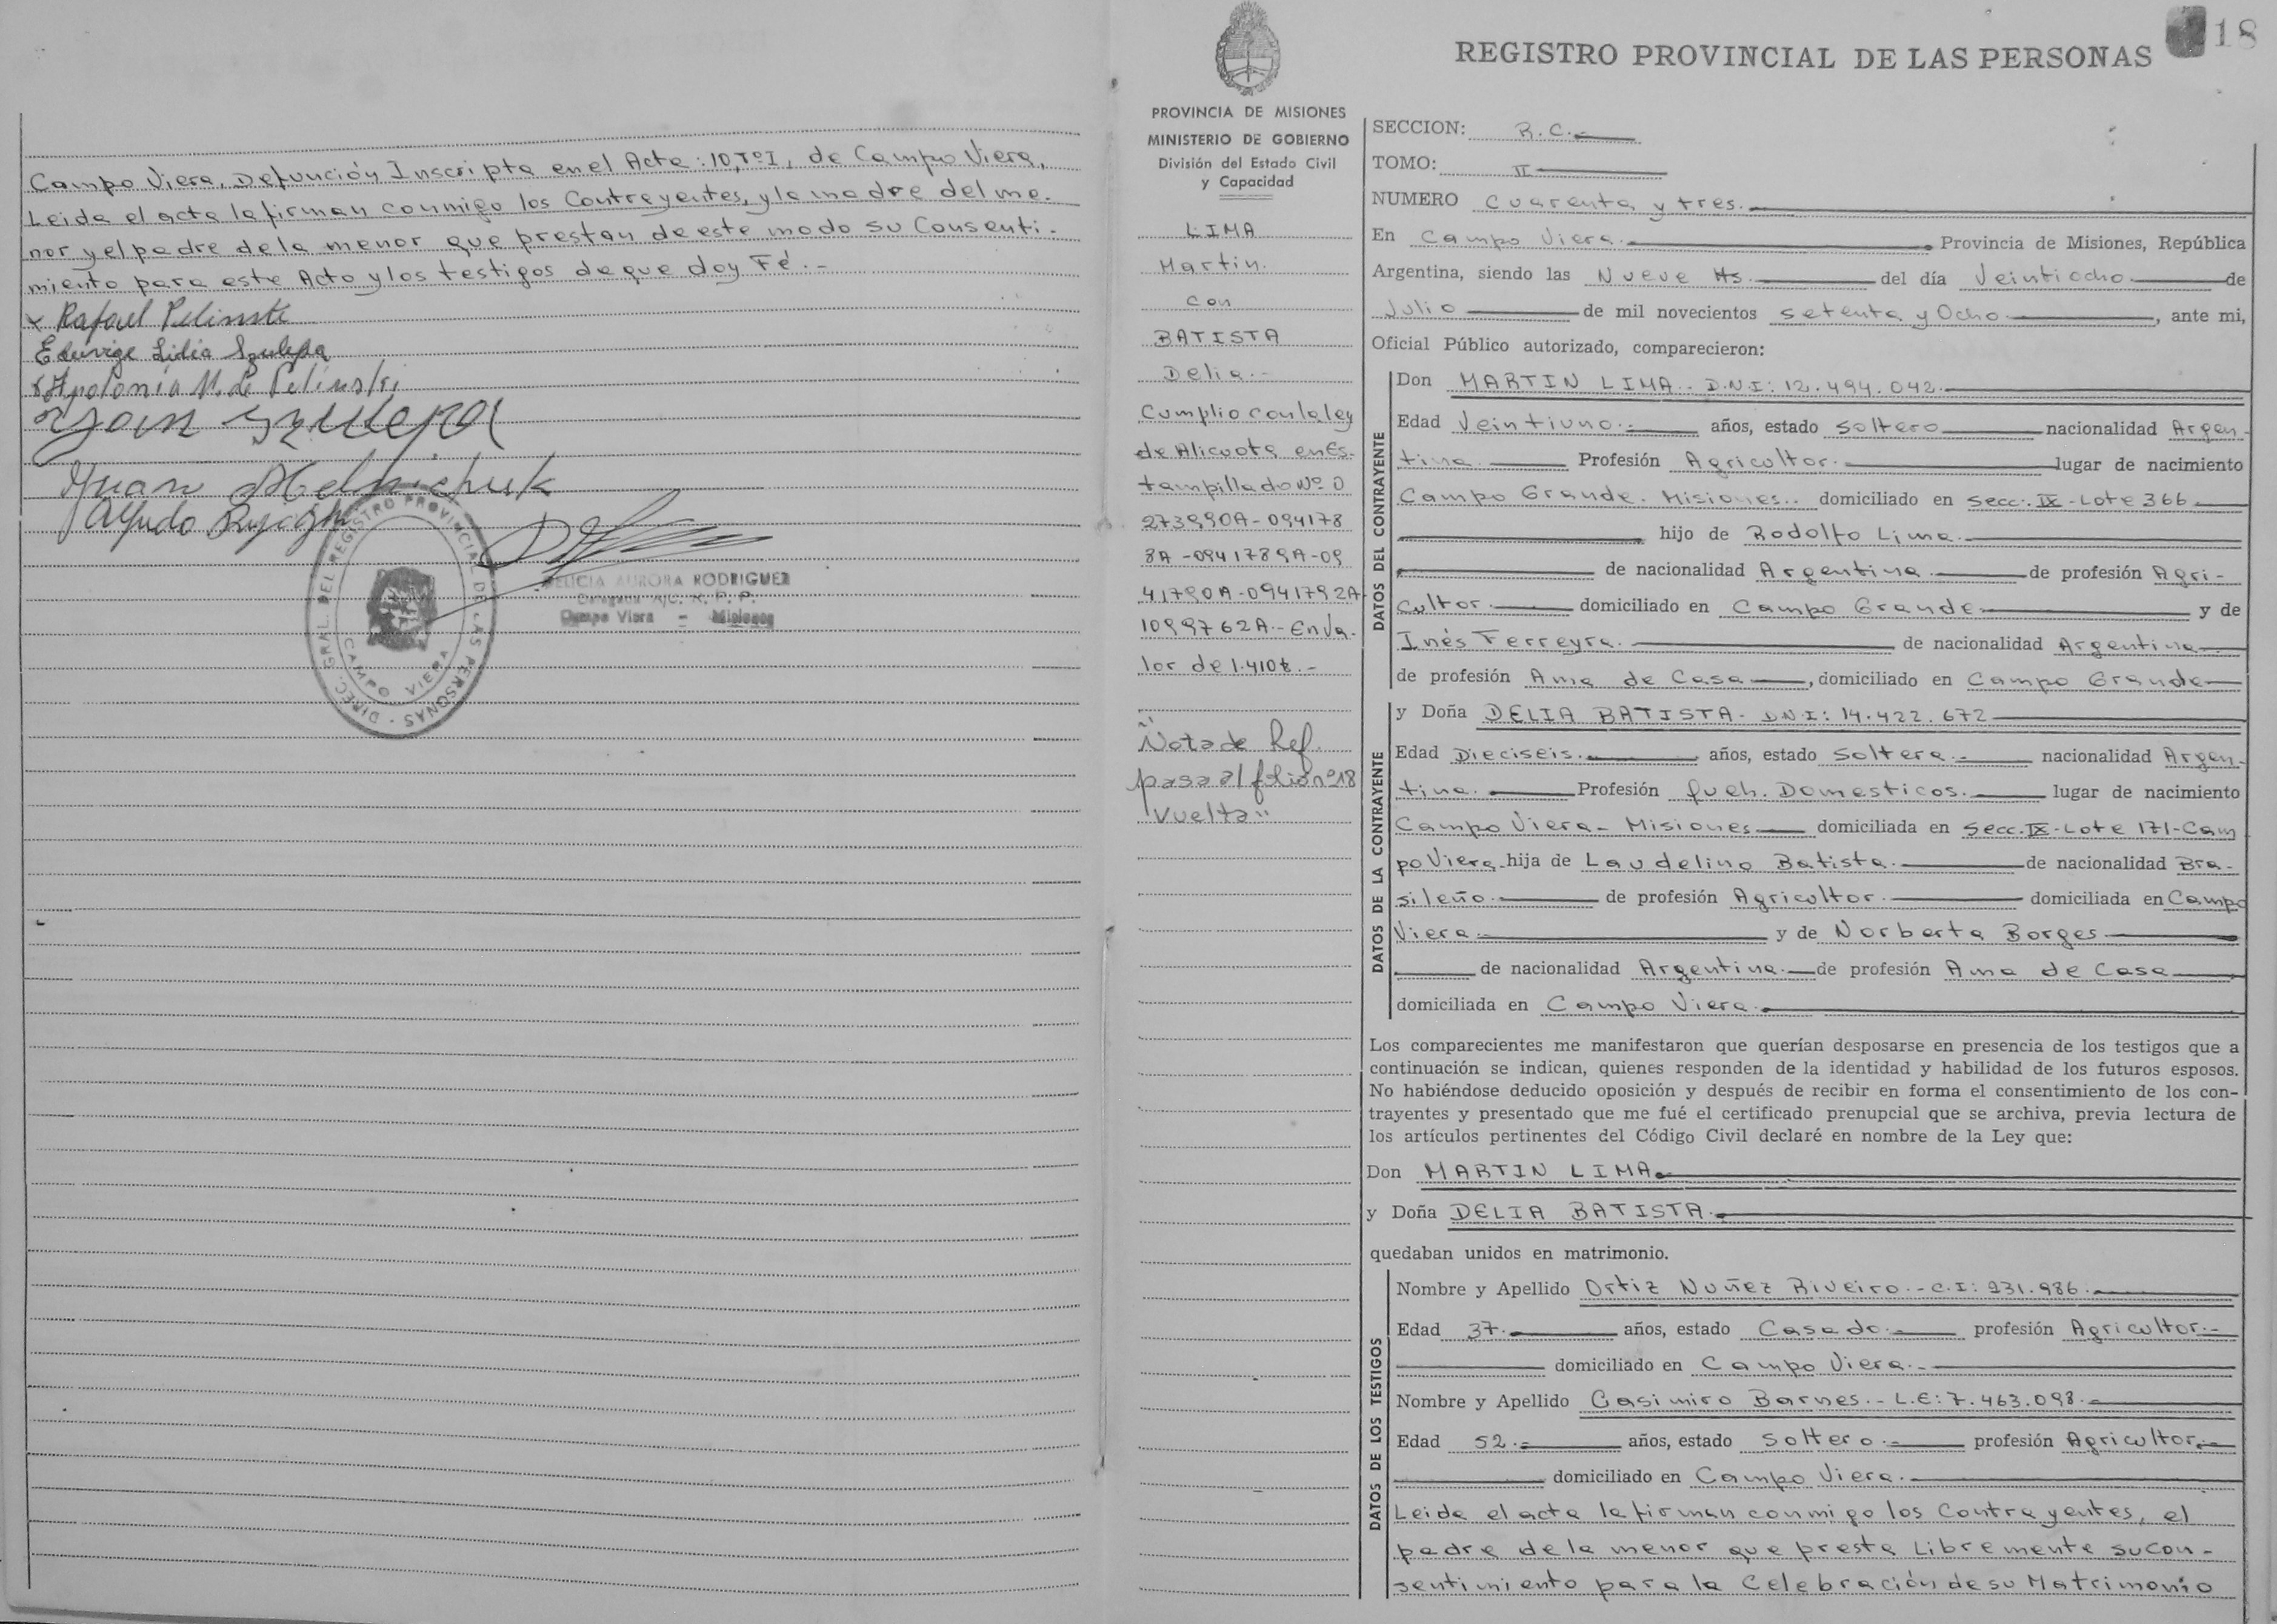 Campo Viera, Defunción Inscripta en el Acta: 10, Tº I, de Campo Viera.
Leida el acta la firman conmigo los Contrayentes, y la madre del me-
nor y el padre de la menor que prestan de este modo su Consenti-
miento para este Acto y los testigos de que doy Fé.-
x Rafael Pelinski
Eduvige Lidia Szulepa
x Apolonia M. de Pelinski
Juan Szulepa
Juan Melnichuk
Alfredo
DIREC. GRAL. DEL REGISTRO PROVINCIAL DE LAS PERSONAS
CAMPO VIERA
FELICIA AURORA RODRIGUEZ
Delegada A/C. R. P. P.
Campo Viera - Misiones
18
REGISTRO PROVINCIAL DE LAS PERSONAS
PROVINCIA DE MISIONES
MINISTERIO DE GOBIERNO
División del Estado Civil
y Capacidad
LIMA
Martin.
con
BATISTA
Delia.-
Cumplio con la ley
de Alicuota en Es-
tampillado Nº 0
273990A-094178
8A-0941789A-09
41790A-0941792A
1099762A.- En Va-
lor de 1.410 $.-
"Nota de Ref.
pasa al folio nº 18
vuelta"
SECCION: R.C.-
TOMO: II
NUMERO Cuarenta y tres.
En Campo Viera. Provincia de Misiones, República
Argentina, siendo las Nueve Hs. del día Veintiocho de
Julio de mil novecientos setenta y Ocho, ante mi,
Oficial Público autorizado, comparecieron:
DATOS DEL CONTRAYENTE
Don MARTIN LIMA.- D.N.I: 12.494.042.
Edad Veintiuno.- años, estado soltero nacionalidad Argen-
tina. Profesión Agricultor. lugar de nacimiento
Campo Grande. Misiones.. domiciliado en Secc. IX - Lote 366
hijo de Rodolfo Lima.
de nacionalidad Argentina. de profesión Agri-
cultor. domiciliado en Campo Grande y de
Inés Ferreyra. de nacionalidad Argentina
de profesión Ama de Casa, domiciliado en Campo Grande
DATOS DE LA CONTRAYENTE
y Doña DELIA BATISTA.- D.N.I: 14.422.672
Edad Dieciseis. años, estado soltera.- nacionalidad Argen-
tina. Profesión Queh. Domesticos. lugar de nacimiento
Campo Viera - Misiones domiciliada en Secc. IX - Lote 171-Cam
po Viera hija de Laudelino Batista. de nacionalidad Bra-
sileño. de profesión Agricultor. domiciliada en Campo
Viera. y de Norberta Borges
de nacionalidad Argentina. de profesión Ama de Casa
domiciliada en Campo Viera.
Los comparecientes me manifestaron que querían desposarse en presencia de los testigos que a
continuación se indican, quienes responden de la identidad y habilidad de los futuros esposos.
No habiéndose deducido oposición y después de recibir en forma el consentimiento de los con-
trayentes y presentado que me fué el certificado prenupcial que se archiva, previa lectura de
los artículos pertinentes del Código Civil declaré en nombre de la Ley que:
Don MARTIN LIMA
y Doña DELIA BATISTA.
quedaban unidos en matrimonio.
DATOS DE LOS TESTIGOS
Nombre y Apellido Ortiz Nuñez Riveiro.- C.I: 231.986.
Edad 37. años, estado Casado. profesión Agricultor.-
domiciliado en Campo Viera.-
Nombre y Apellido Casimiro Barnes.- L.E: 7.463.098.
Edad 52.- años, estado soltero.- profesión Agricultor.-
domiciliado en Campo Viera.
Leida el acta la firman conmigo los Contrayentes, el
padre de la menor que presta Libremente su con-
sentimiento para la Celebración de su Matrimonio